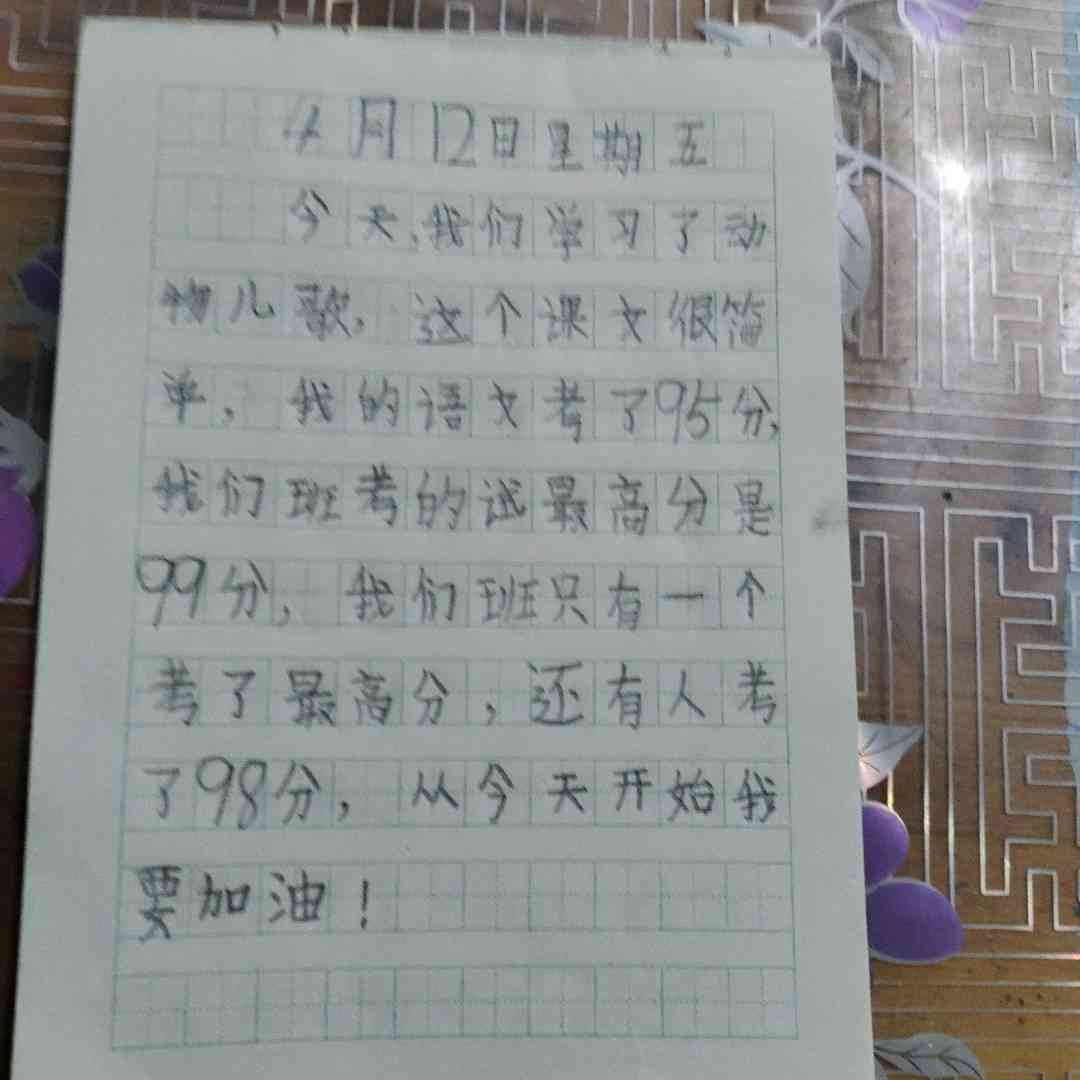 4月12日星期五
今天,我们学习了动
物儿歌,这个课文很简
单,我的语文考了95分,
我们班考的试最高分是
99分,我们班只有一个
考了最高分,还有人考
了98分,从今天开始我
要加油!